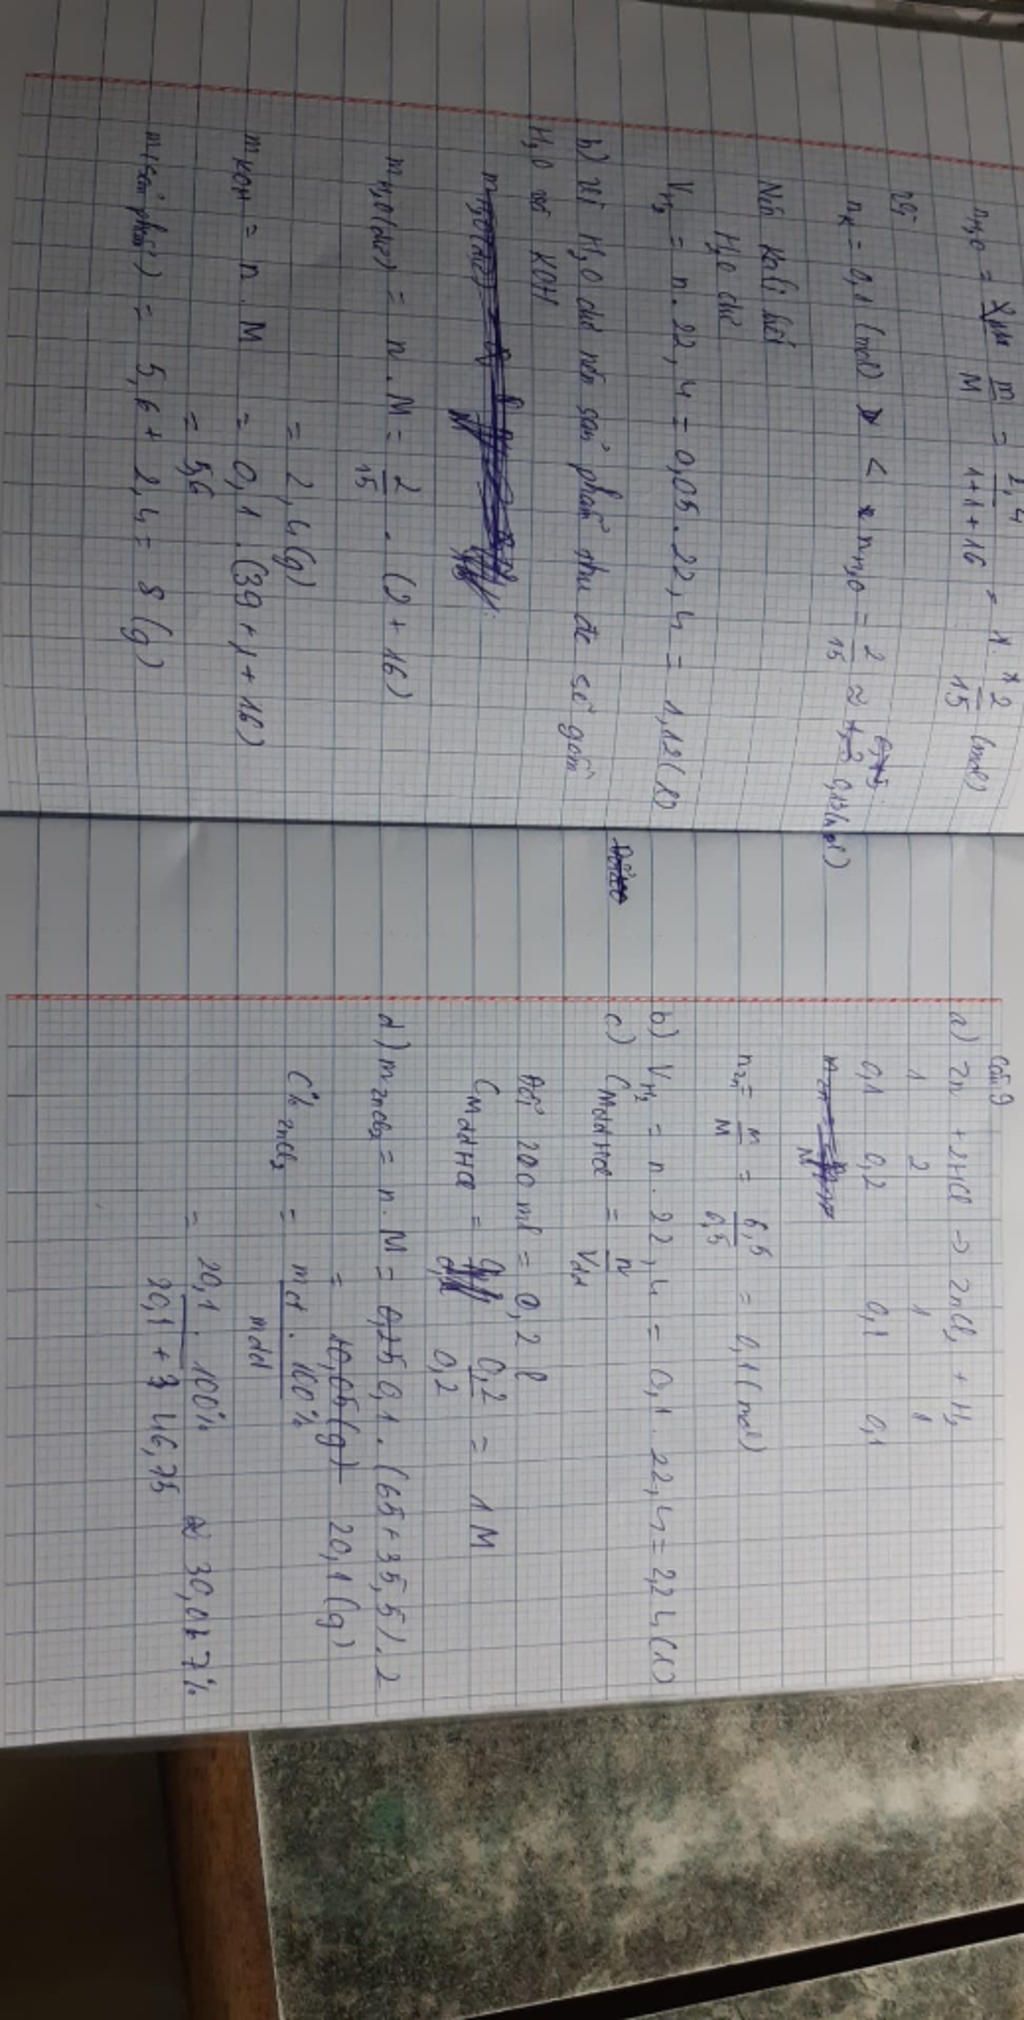 n_H₂O = m/M = 2,4/(1+1+16) = 2/15 (mol)
Vì
n_K = 0,1 (mol) < n_H₂O = 2/15 ≈ 0,13 (mol)
Nên Kali hết
H₂O dư
V_H₂ = n . 22,4 = 0,05 . 22,4 = 1,12 (l)
b) Vì H₂O dư nên sản phẩm thu đc sẽ gồm
H₂O và KOH
m_H₂O (dư) = n . M = 2/15 . (2 + 16)
= 2,4 (g)
m_KOH = n . M = 0,1 . (39 + 1 + 16)
= 5,6
m (sản phẩm) = 5,6 + 2,4 = 8 (g)
Câu 9
a) Zn + 2HCl → ZnCl₂ + H₂
1 2 1 1
0,1 0,2 0,1 0,1
n_Zn = m/M = 6,5/6,5 = 0,1 (mol)
b) V_H₂ = n . 22,4 = 0,1 . 22,4 = 2,24 (l)
c) C_M dd HCl = n/V_dd
Đổi 200 ml = 0,2 l
C_M dd HCl = 0,2/0,2 = 1 M
d) m_ZnCl₂ = n . M = 0,1 . (65 + 35,5) . 2
= 10,05 (g) 20,1 (g)
C%_ZnCl₂ = mct . 100% / mdd
= 20,1 . 100% / 20,1 + 46,75 ≈ 30,067%